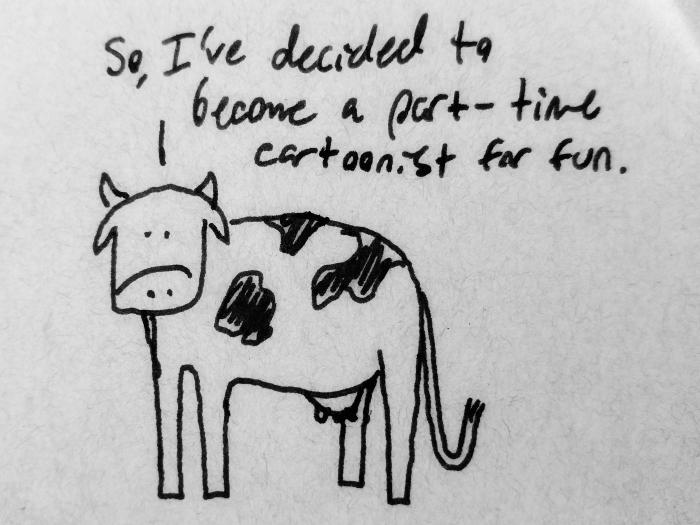 So, I've decided to
become a part-time
cartoonist for fun.